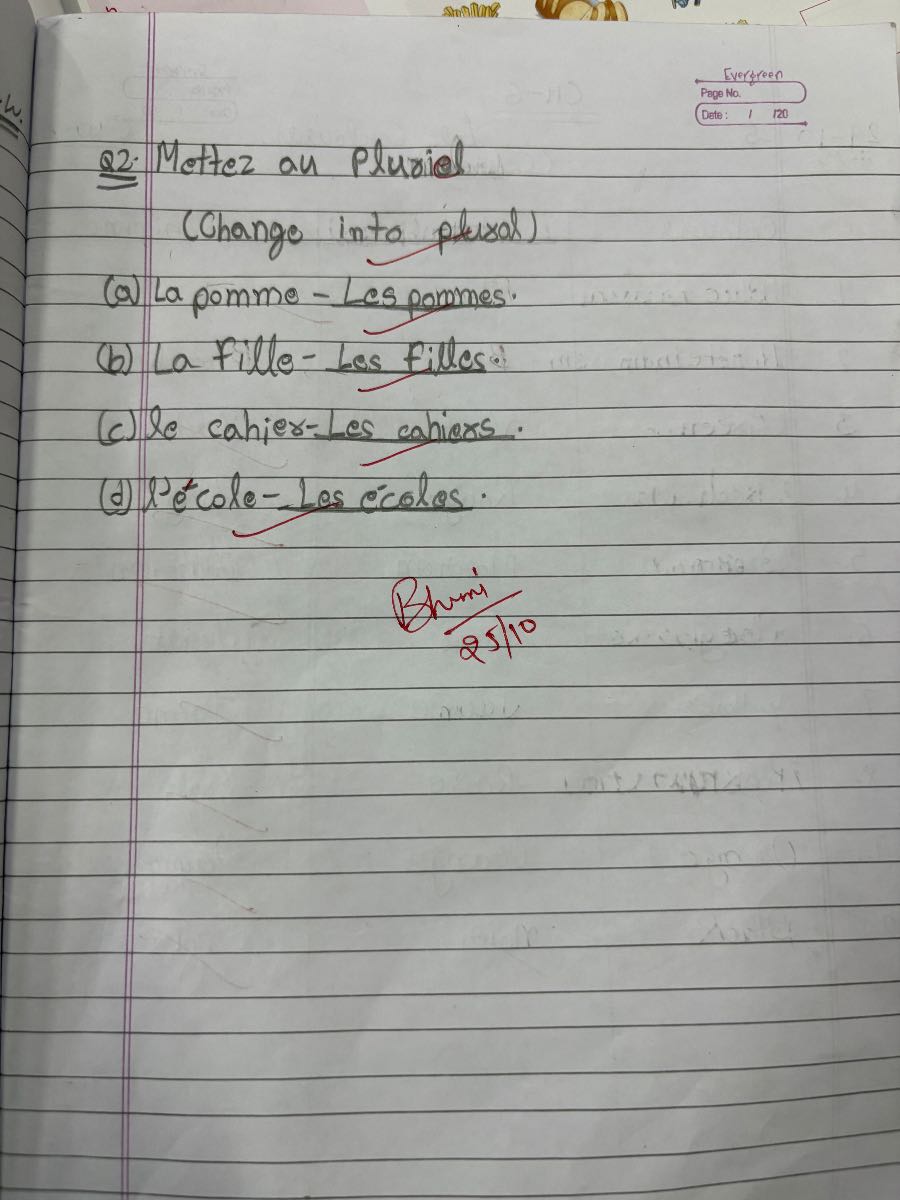 Evergreen
Page No.
Date : / /20
Q2. Mettez au Pluriel
(Change into plural)
(a) La pomme - Les pommes.
(b) La fille - Les filles.
(c) le cahier - Les cahiers.
(d) l'école - Les écoles.
Bhumi
25/10